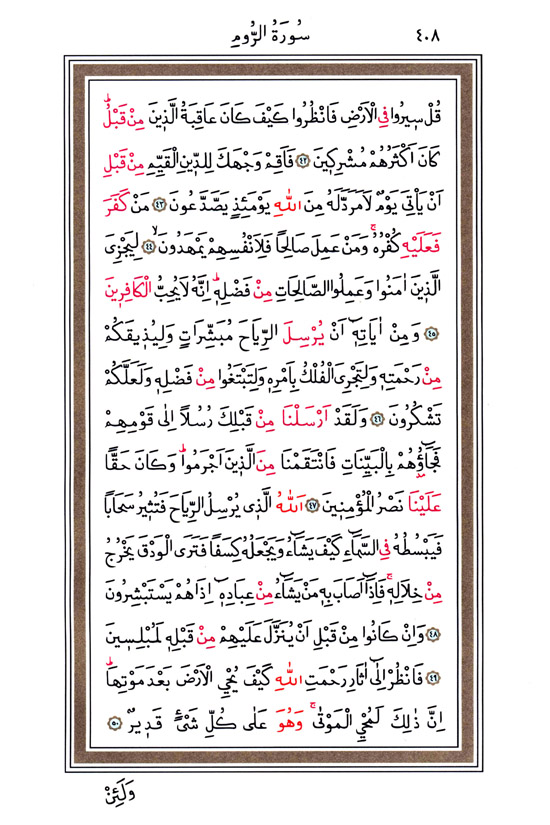 سُورَةُ الرُّومِ ٤٠٨
قُلْ سٖيرُوا فِي الْاَرْضِ فَانْظُرُوا كَيْفَ كَانَ عَاقِبَةُ الَّذٖينَ مِنْ قَبْلُؕ
كَانَ اَكْثَرُهُمْ مُشْرِكٖينَ ﴿٤٢﴾ فَاَقِمْ وَجْهَكَ لِلدّٖينِ الْقَيِّمِ مِنْ قَبْلِ
اَنْ يَأْتِيَ يَوْمٌ لَا مَرَدَّ لَهُ مِنَ اللّٰهِ يَوْمَئِذٍ يَصَّدَّعُونَ ﴿٤٣﴾ مَنْ كَفَرَ
فَعَلَيْهِ كُفْرُهُۚ وَمَنْ عَمِلَ صَالِحًا فَلِاَنْفُسِهِمْ يَمْهَدُونَۙ ﴿٤٤﴾ لِيَجْزِيَ
الَّذٖينَ اٰمَنُوا وَعَمِلُوا الصَّالِحَاتِ مِنْ فَضْلِهٖؕ اِنَّهُ لَا يُحِبُّ الْكَافِرٖينَ
﴿٤٥﴾ وَمِنْ اٰيَاتِهٖٓ اَنْ يُرْسِلَ الرِّيَاحَ مُبَشِّرَاتٍ وَلِيُذٖيقَكُمْ
مِنْ رَحْمَتِهٖ وَلِتَجْرِيَ الْفُلْكُ بِاَمْرِهٖ وَلِتَبْتَغُوا مِنْ فَضْلِهٖ وَلَعَلَّكُمْ
تَشْكُرُونَ ﴿٤٦﴾ وَلَقَدْ اَرْسَلْنَا مِنْ قَبْلِكَ رُسُلًا اِلٰى قَوْمِهِمْ
فَجَٓاؤُ۫هُمْ بِالْبَيِّنَاتِ فَانْتَقَمْنَا مِنَ الَّذٖينَ اَجْرَمُواؕ وَكَانَ حَقًّا
عَلَيْنَا نَصْرُ الْمُؤْمِنٖينَ ﴿٤٧﴾ اَللّٰهُ الَّذٖي يُرْسِلُ الرِّيَاحَ فَتُثٖيرُ سَحَابًا
فَيَبْسُطُهُ فِي السَّمَٓاءِ كَيْفَ يَشَٓاءُ وَيَجْعَلُهُ كِسَفًا فَتَرَى الْوَدْقَ يَخْرُجُ
مِنْ خِلَالِهٖۚ فَاِذَٓا اَصَابَ بِهٖ مَنْ يَشَٓاءُ مِنْ عِبَادِهٖٓ اِذَا هُمْ يَسْتَبْشِرُونَ
﴿٤٨﴾ وَاِنْ كَانُوا مِنْ قَبْلِ اَنْ يُنَزَّلَ عَلَيْهِمْ مِنْ قَبْلِهٖ لَمُبْلِسٖينَ
﴿٤٩﴾ فَانْظُرْ اِلٰٓى اٰثَارِ رَحْمَتِ اللّٰهِ كَيْفَ يُحْيِي الْاَرْضَ بَعْدَ مَوْتِهَاؕ
اِنَّ ذٰلِكَ لَمُحْيِي الْمَوْتٰىۚ وَهُوَ عَلٰى كُلِّ شَيْءٍ قَدٖيرٌ ﴿٥٠﴾
وَلَئِنْ